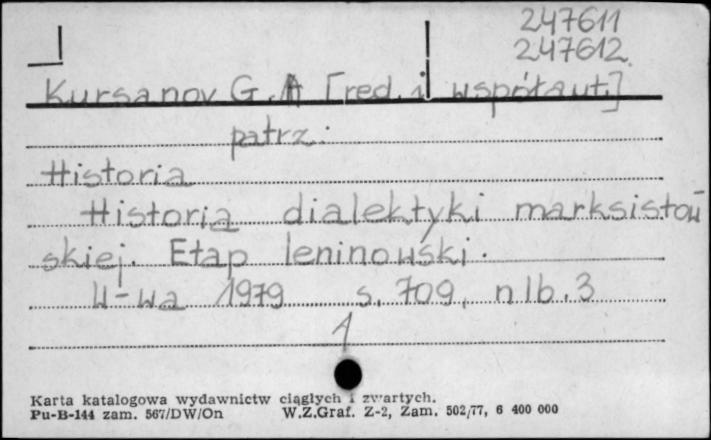 247611
247612
Kursanov G. A [red. i współaut.]
patrz.
Historia
Historia dialektyki marksistow
skiej. Etap leninowski.
W-wa 1979 s. 709, nlb. 3
1
Karta katalogowa wydawnictw ciągłych i zwartych.
Pu-B-144 zam. 567/DW/On W.Z.Graf. Z-2, Zam. 502/77, 6 400 000